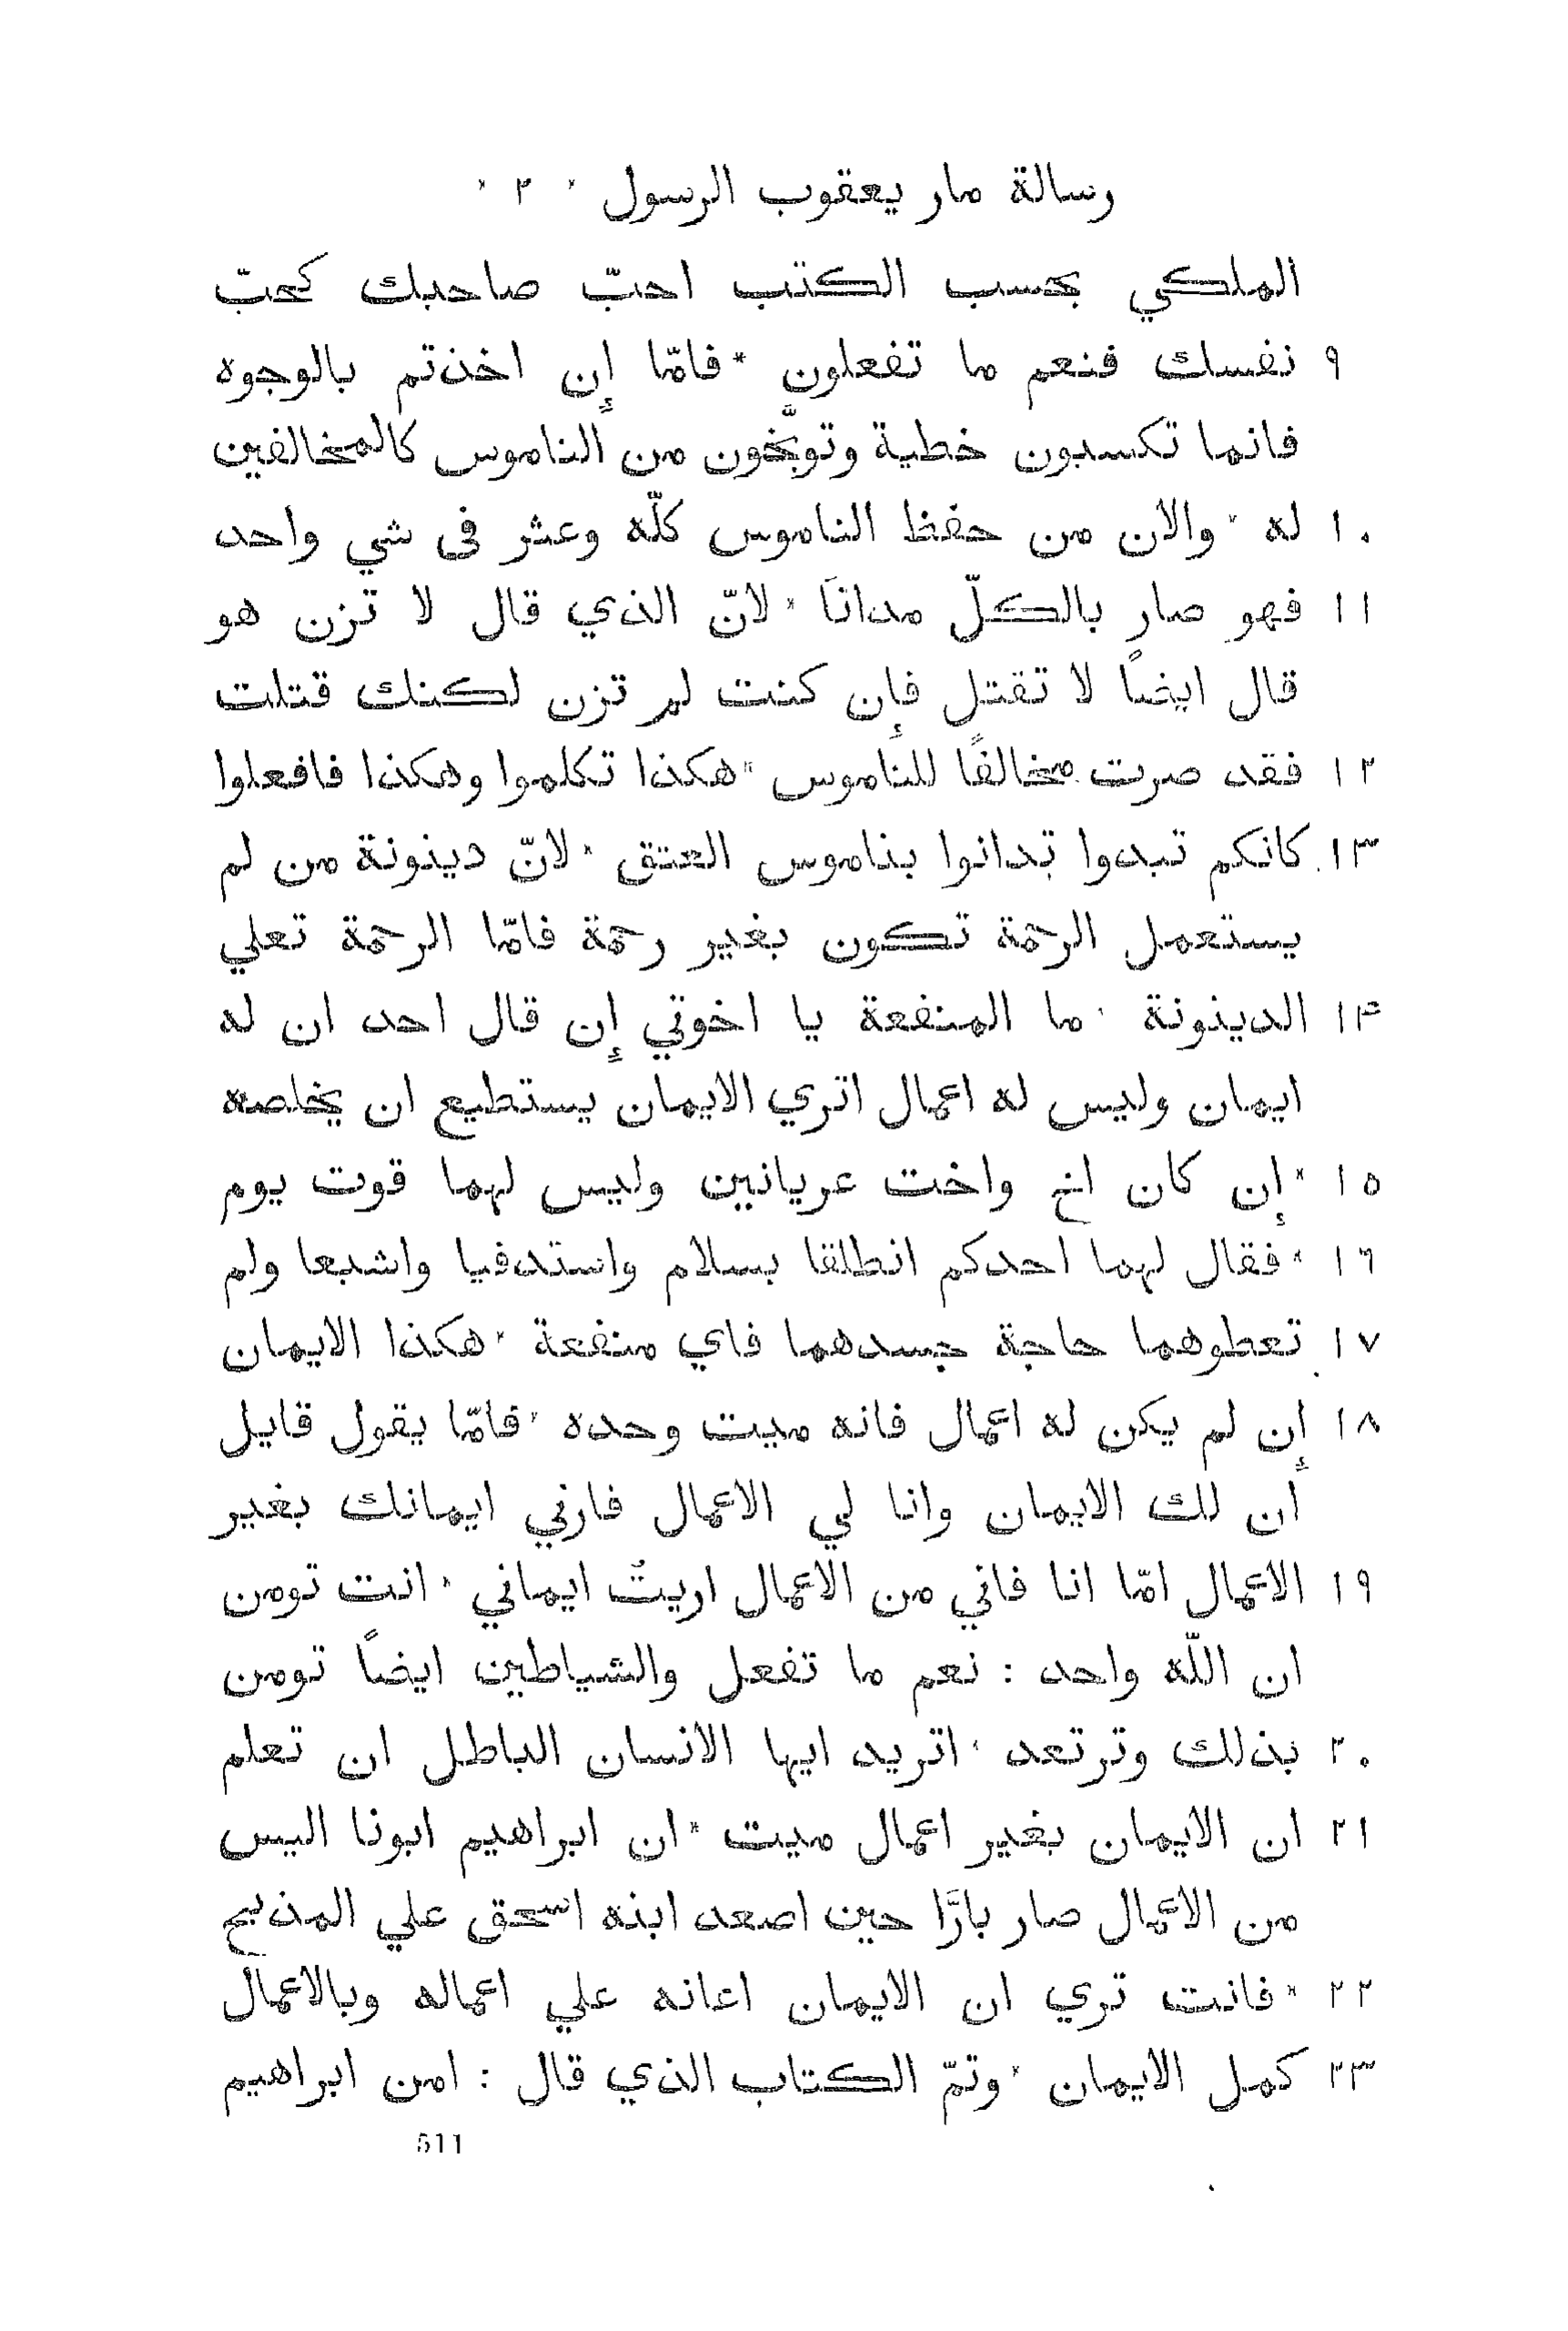 رسالة مار يعقوب الرسول * ٢ *
الملكي بحسب الكتب احبّ صاحبك كحبّ
٩ نفسك فنعم ما تفعلون * فامّا إن اخذتم بالوجوه
فانما تكسبون خطية وتوبَّخون من الناموس كالمخالفين
١٠ له * والان من حفظ الناموس كلّه وعثر فى شي واحد
١١ فهو صار بالكلّ مدانًا * لانّ الذي قال لا تزن هو
قال ايضاً لا تقتل فإن كنت لم تزن لكنك قتلت
١٢ فقد صرت مخالفًا للناموس * هكذا تكلموا وهكذا فافعلوا
١٣ كانكم تبدوا تدانوا بناموس العتق * لانّ دينونة من لم
يستعمل الرحمة تكون بغير رحمة فامّا الرحمة تعلي
١۴ الدينونة * ما المنفعة يا اخوتي إن قال احد ان له
ايمان وليس له اعمال اتري الايمان يستطيع ان يخلصه
١٥ * إن كان اخ واخت عريانين وليس لهما قوت يوم
١٦ * فقال لهما احدكم انطلقا بسلام واستدفيا واشبعا ولم
١٧ تعطوهما حاجة جسدهما فاي منفعة * هكذا الايمان
١٨ إن لم يكن له اعمال فانه ميت وحده * فامّا يقول قايل
ان لك الايمان وانا لي الاعمال فارني ايمانك بغير
١٩ الاعمال امّا انا فاني من الاعمال اريتُ ايماني * انت تومن
ان اللّه واحد : نعم ما تفعل والشياطين ايضاً تومن
٢٠ بذلك وترتعد * اتريد ايها الانسان الباطل ان تعلم
٢١ ان الايمان بغير اعمال ميت * ان ابراهيم ابونا اليس
من الاعمال صار بارًّا حين اصعد ابنه اسحق علي المذبح
٢٢ * فانت تري ان الايمان اعانه علي اعماله وبالاعمال
٢٣ كمل الايمان * وتمّ الكتاب الذي قال : امن ابراهيم
511